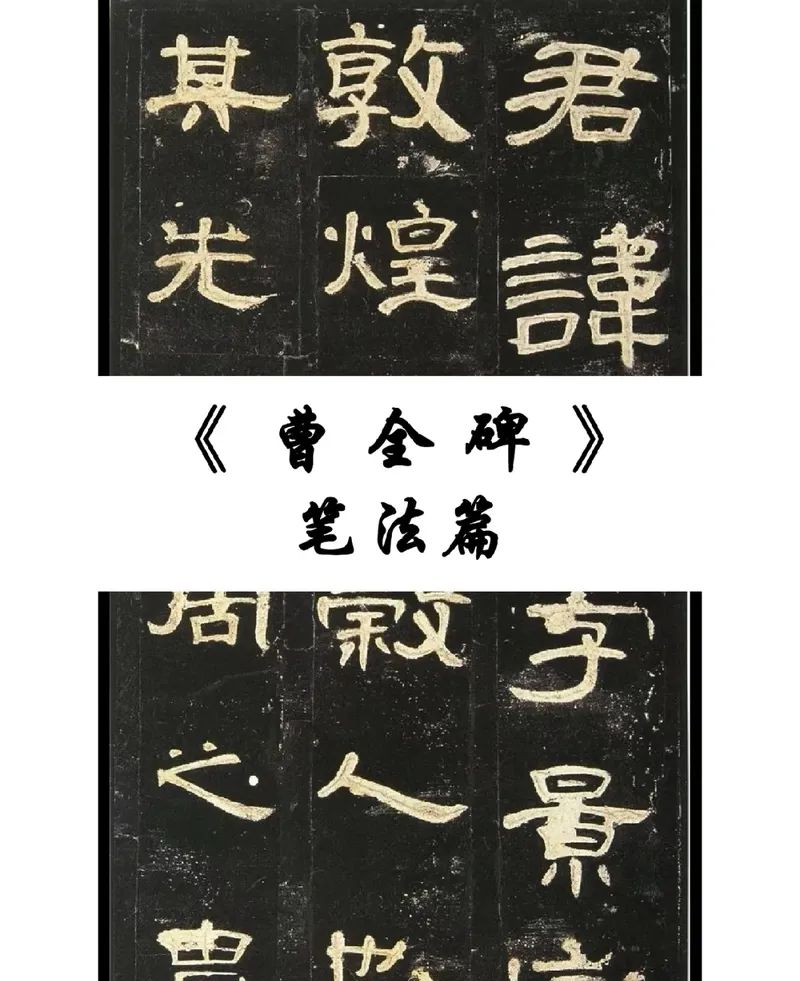 君諱
敦煌
其先
《曹全碑》
笔法篇
字景
穀人
周之